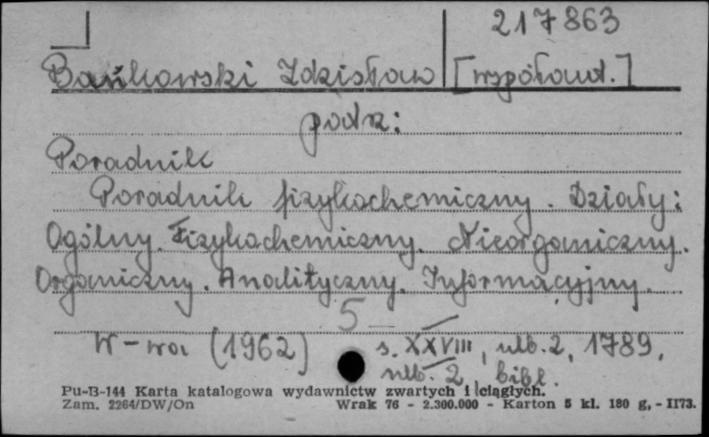 217863
Bańkowski Zdzisław [współaut.]
podz:
Poradnik
Poradnik fizykochemiczny. Działy:
Ogólny. Fizykochemiczny. Nieorganiczny.
Organiczny. Analityczny. Informacyjny.
5-
W-wa (1962) s. XXVIII, nlb. 2, 1789,
nlb. 2, bibl.
Pu-B-144 Karta katalogowa wydawnictw zwartych i ciągłych.
Zam. 2264/DW/On Wrak 76 - 2.300.000 - Karton 5 kl. 180 g, - II73.